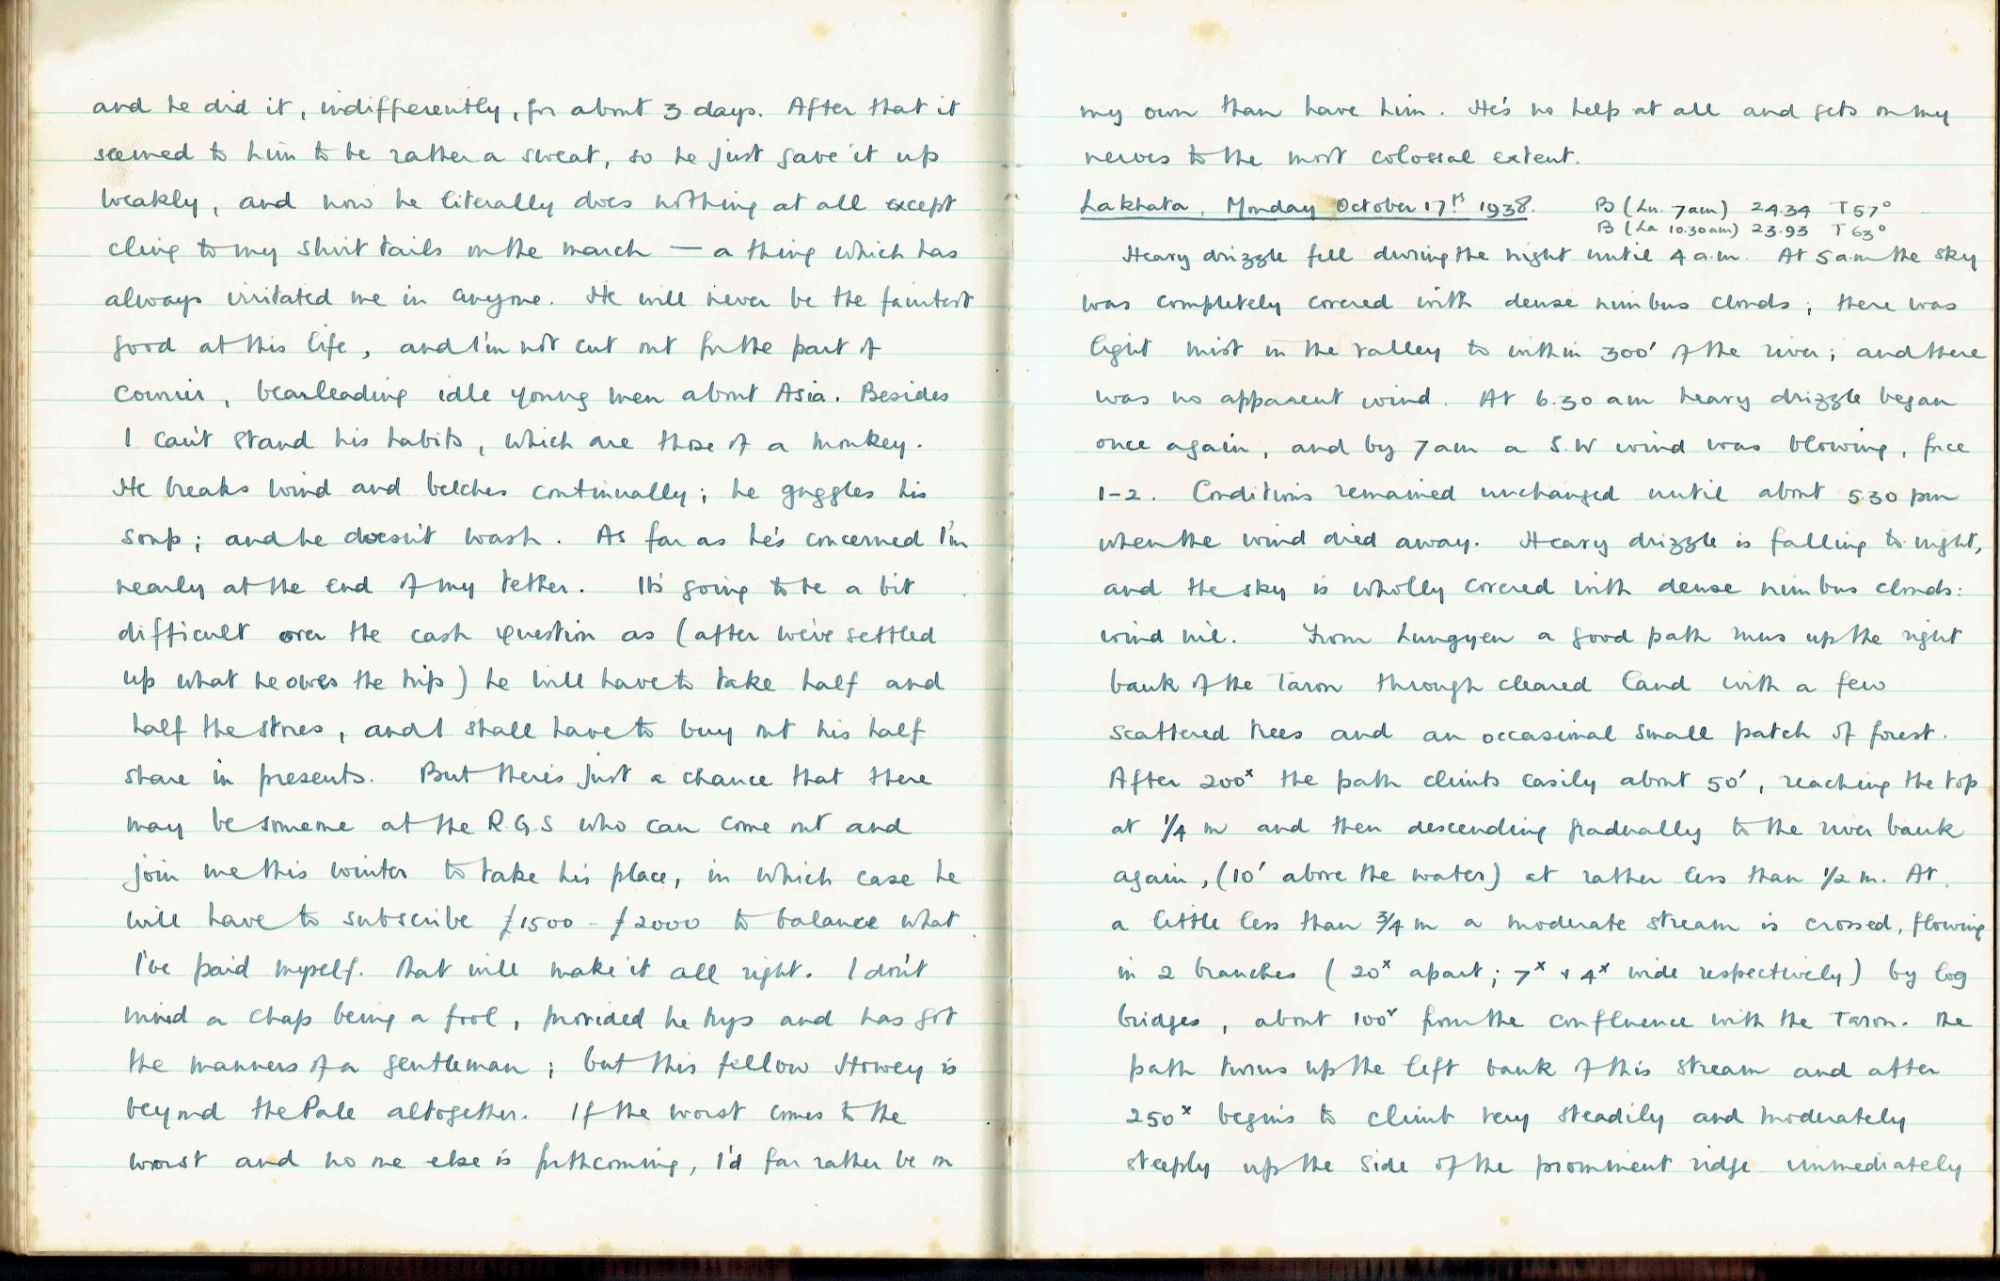 and he did it, indifferently, for about 3 days. After that it
seemed to him to be rather a sweat, so he just gave it up
weakly, and now he literally does nothing at all except
cling to my shirt tails on the march — a thing which has
always irritated me in anyone. He will never be the faintest
good at this life, and I'm not cut out for the part of
courier, bearleading idle young men about Asia. Besides
I can't stand his habits, which are those of a monkey.
He breaks wind and belches continually; he guggles his
soup; and he doesn't wash. As far as he's concerned I'm
nearly at the end of my tether. It's going to be a bit
difficult over the cash question as (after we've settled
up what he owes the trip) he will have to take half and
half the stores, and I shall have to buy out his half
share in presents. But there's just a chance that there
may be someone at the R.G.S who can come out and
join me this winter to take his place, in which case he
will have to subscribe £1500 - £2000 to balance what
I've paid myself. That will make it all right. I don't
mind a chap being a fool, provided he trys and has got
the manners of a gentleman; but this fellow Howey is
beyond the Pale altogether. If the worst comes to the
worst and no one else is forthcoming, I'd far rather be on
my own than have him. He's no help at all and gets on my
nerves to the most colossal extent.
Lakhata, Monday October 17th 1938. B (Lu. 7am) 24.34 T 57°
B (La 10.30am) 23.93 T 63°
Heavy drizzle fell during the night until 4 a.m. At 5 a.m the sky
was completely covered with dense nimbus clouds; there was
light mist in the valley to within 300' of the river; and there
was no apparent wind. At 6.30 am heavy drizzle began
once again, and by 7 am a S.W wind was blowing, force
1-2. Conditions remained unchanged until about 5.30 pm
when the wind died away. Heavy drizzle is falling to-night,
and the sky is wholly covered with dense nimbus clouds:
wind nil. From Lungyen a good path runs up the right
bank of the Taron through cleared land with a few
scattered trees and an occasional small patch of forest.
After 200ˣ the path climbs easily about 50', reaching the top
at 1/4 m and then descending gradually to the river bank
again, (10' above the water) at rather less than 1/2 m. At
a little less than 3/4 m a moderate stream is crossed, flowing
in 2 branches (20ˣ apart; 7ˣ + 4ˣ wide respectively) by log
bridges, about 100ˣ from the confluence with the Taron. The
path turns up the left bank of this stream and after
250ˣ begins to climb very steadily and moderately
steeply up the side of the prominent ridge immediately